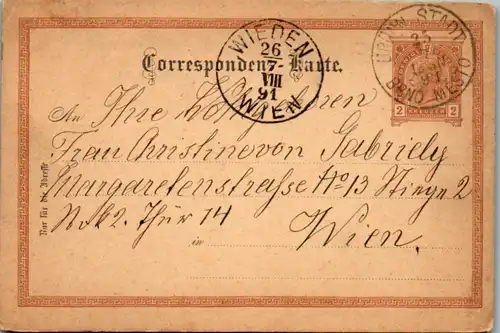 WIEDEN
26
7-
VIII
91
WIEN
BRÜNN STADT
Correspondenz-Karte.
2 KREUZER 2
An Ihre Hochgeboren
Frau Christine von Gabriely
Margaretenstrasse No 13 Stiege 2
Stok 2. Thür 14
in Wien.
Nur für die Adresse